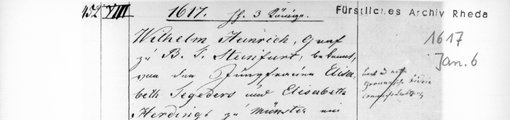 452 VIII 1617. ff. 3 Könige. Fürstliches Archiv Rheda
Wilhelm Heinrich, Graf
zu B. T. Steinfurt, bekennt, 1617
von den Jungfrauen Elisa- Jan. 6
beth Segeders und Elisabeth
Herdings zu Münster ein